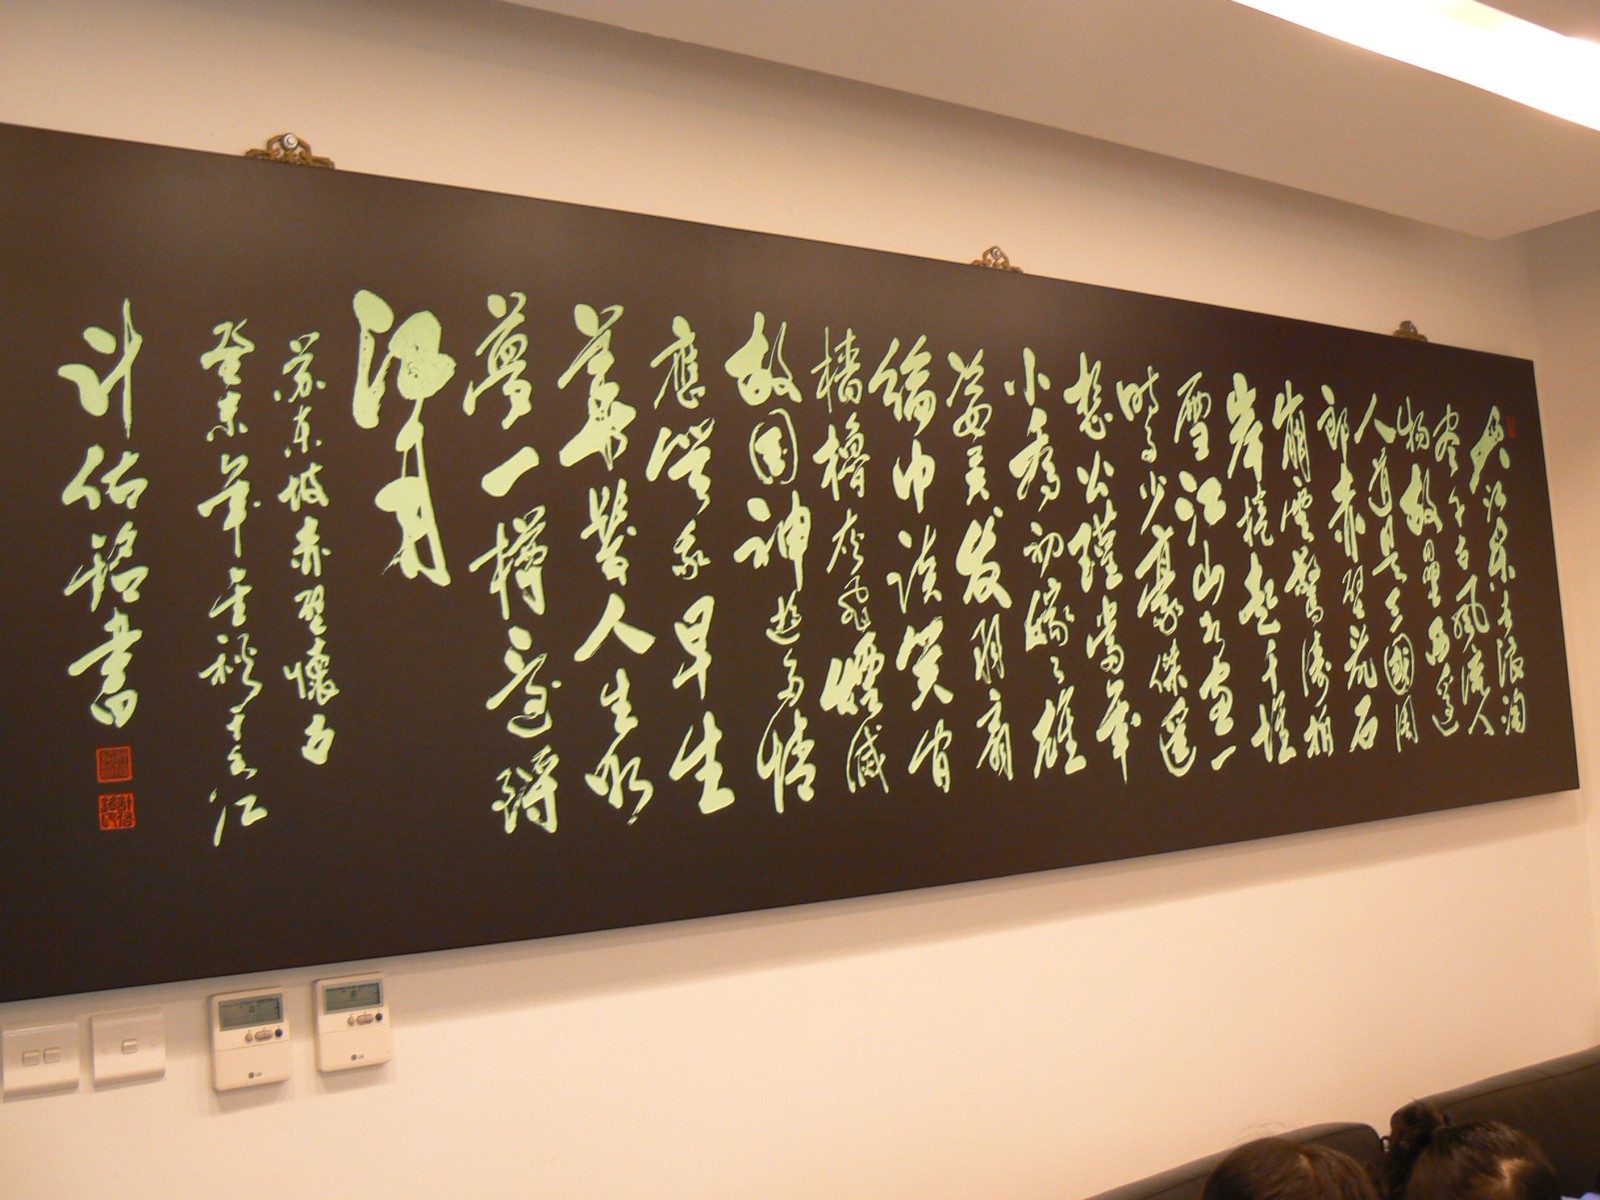 大江東去浪淘
尽千古風流人
物故壘西邊
人道是三國周
郎赤壁乱石
崩雲驚濤拍
岸捲起千堆
雪江山如画一
時多少豪傑遥
想公瑾當年
小喬初嫁了雄
姿英发羽扇
綸巾談笑间
檣櫓灰飛煙滅
故国神遊多情
應笑我早生
華髮人生如
夢一樽還酹
江月
苏東坡赤壁懷古
癸未年金秋于吴江
计佑銘書
計佑銘印
LG
LG